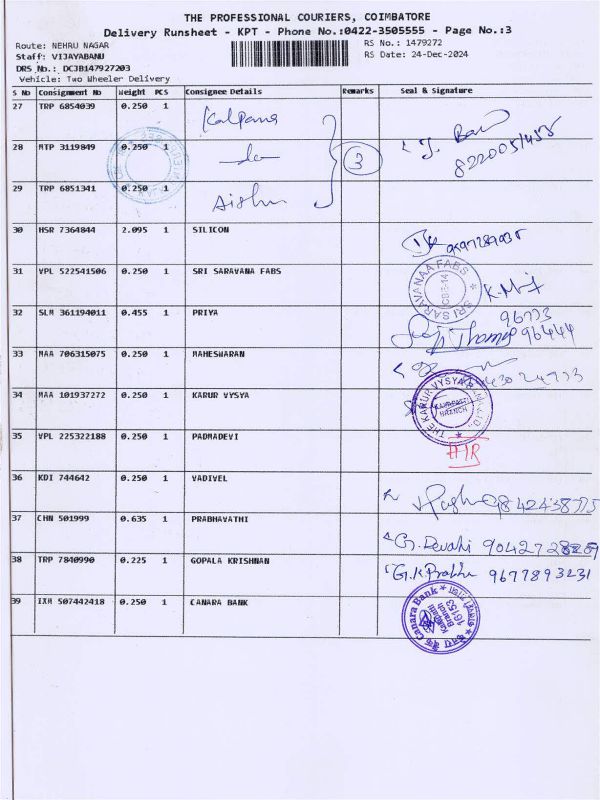 THE PROFESSIONAL COURIERS, COIMBATORE
Delivery Runsheet - KPT - Phone No.:0422-3505555 - Page No.:3
Route: NEHRU NAGAR
RS No.: 1479272
Staff: VIJAYABANU
RS Date: 24-Dec-2024
DRS No.: DCJB147927203
Vehicle: Two Wheeler Delivery
S No Consignment No Weight PCS Consignee Details Remarks Seal & Signature
27 TRP 6854039 0.250 1 Kalpana
28 MTP 3119849 0.250 1 3
29 TRP 6851341 0.250 1
30 HSR 7364844 2.095 1 SILICON
31 VPL 522541506 0.250 1 SRI SARAVANA FABS SRI SARAVANAA FABS
32 SLM 361194011 0.455 1 PRIYA 96773
96444
33 MAA 706315075 0.250 1 MAHESWARAN
34 MAA 101937272 0.250 1 KARUR VYSYA THE KARUR VYSYA BRANCH
35 VPL 225322188 0.250 1 PADMADEVI
36 KDI 744642 0.250 1 VADIVEL
37 CHN 501999 0.635 1 PRABHAVATHI G. Devahi
38 TRP 7840990 0.225 1 GOPALA KRISHNAN G.K Prabhu 9677893231
39 IXM 507442418 0.250 1 CANARA BANK Canara Bank Branch 16153